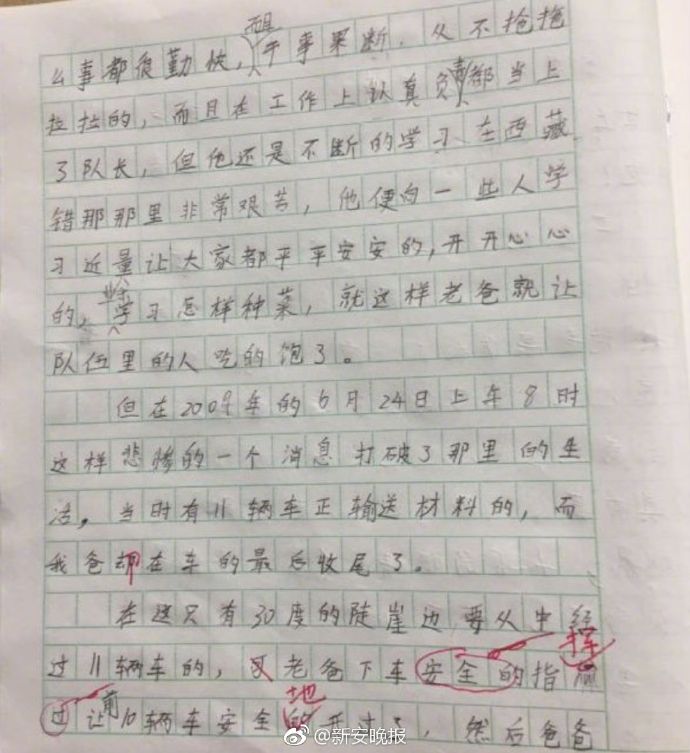 而且
么事都很勤快，干事果断，从不拖拖
拉拉的，而且在工作上认真负责都当上
了队长，但他还是不断的学习在西藏
错那那里非常艰苦，他便向一些人学
习近量让大家都平平安安的，开开心心
的，学习怎样种菜，就这样老爸就让
队伍里的人吃的饱了。
但在2009年的6月24日上午8时
这样悲惨的一个消息打破了那里的生
活，当时有11辆车正输送材料的，而
我爸却在车的最后收尾了。
在这只有30度的陡崖边要从中经
过11辆车的，老爸下车安全的指
挥
过让前10辆车安全的开过了，然后爸爸
地
@新安晚报